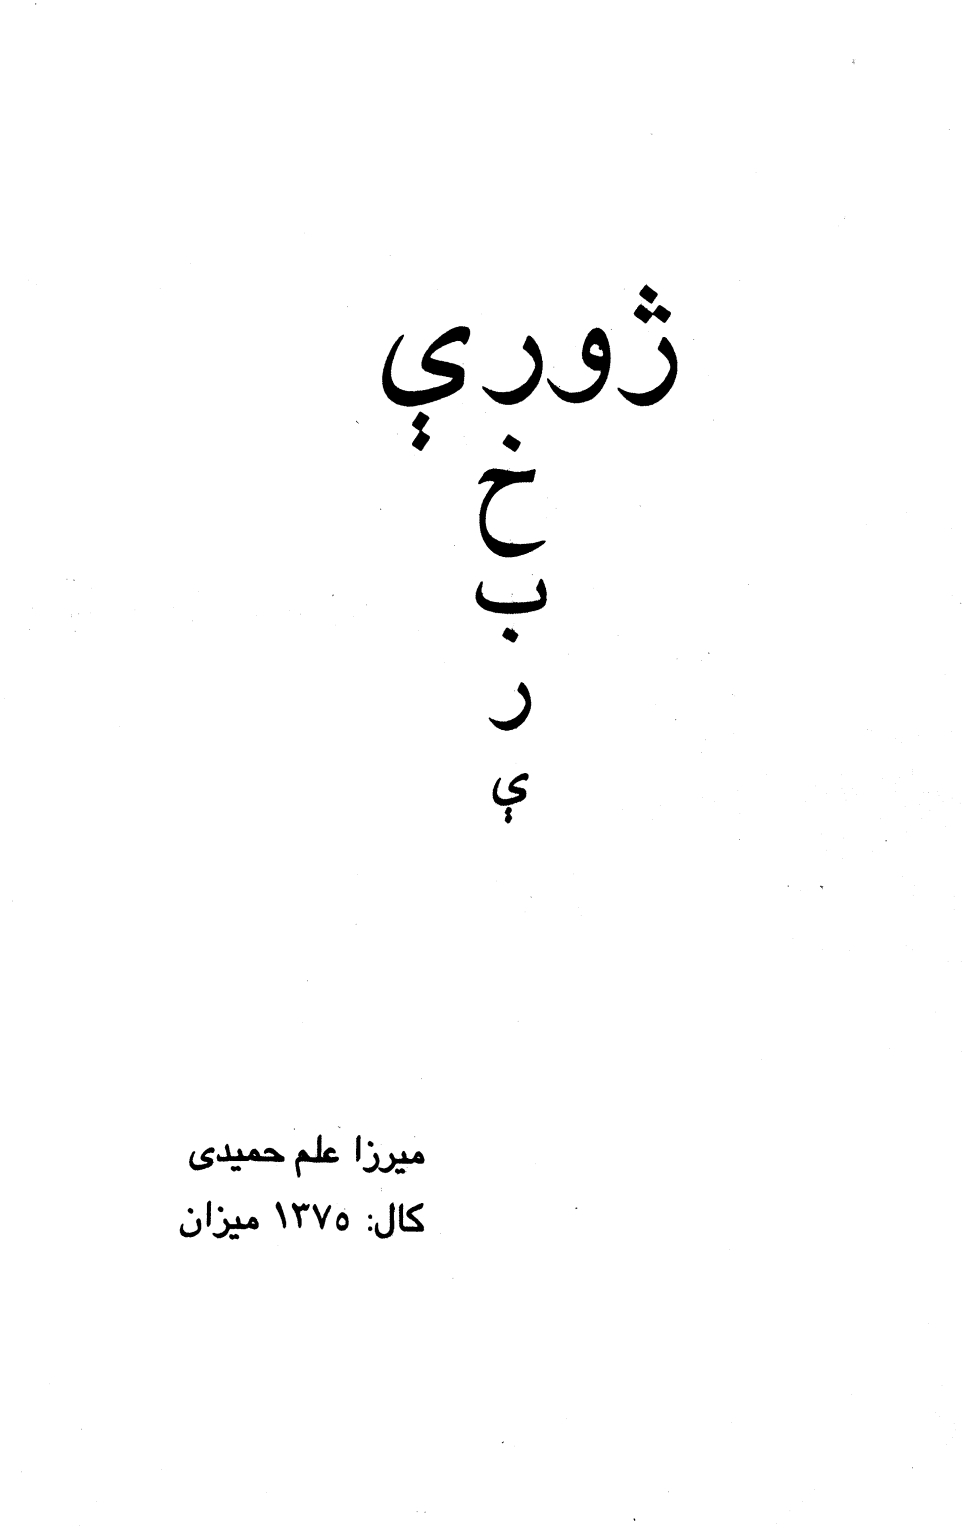 ژورې
خ
ب
ر
ې
میرزا علم حمیدی
کال: ۱۳۷۵ میزان